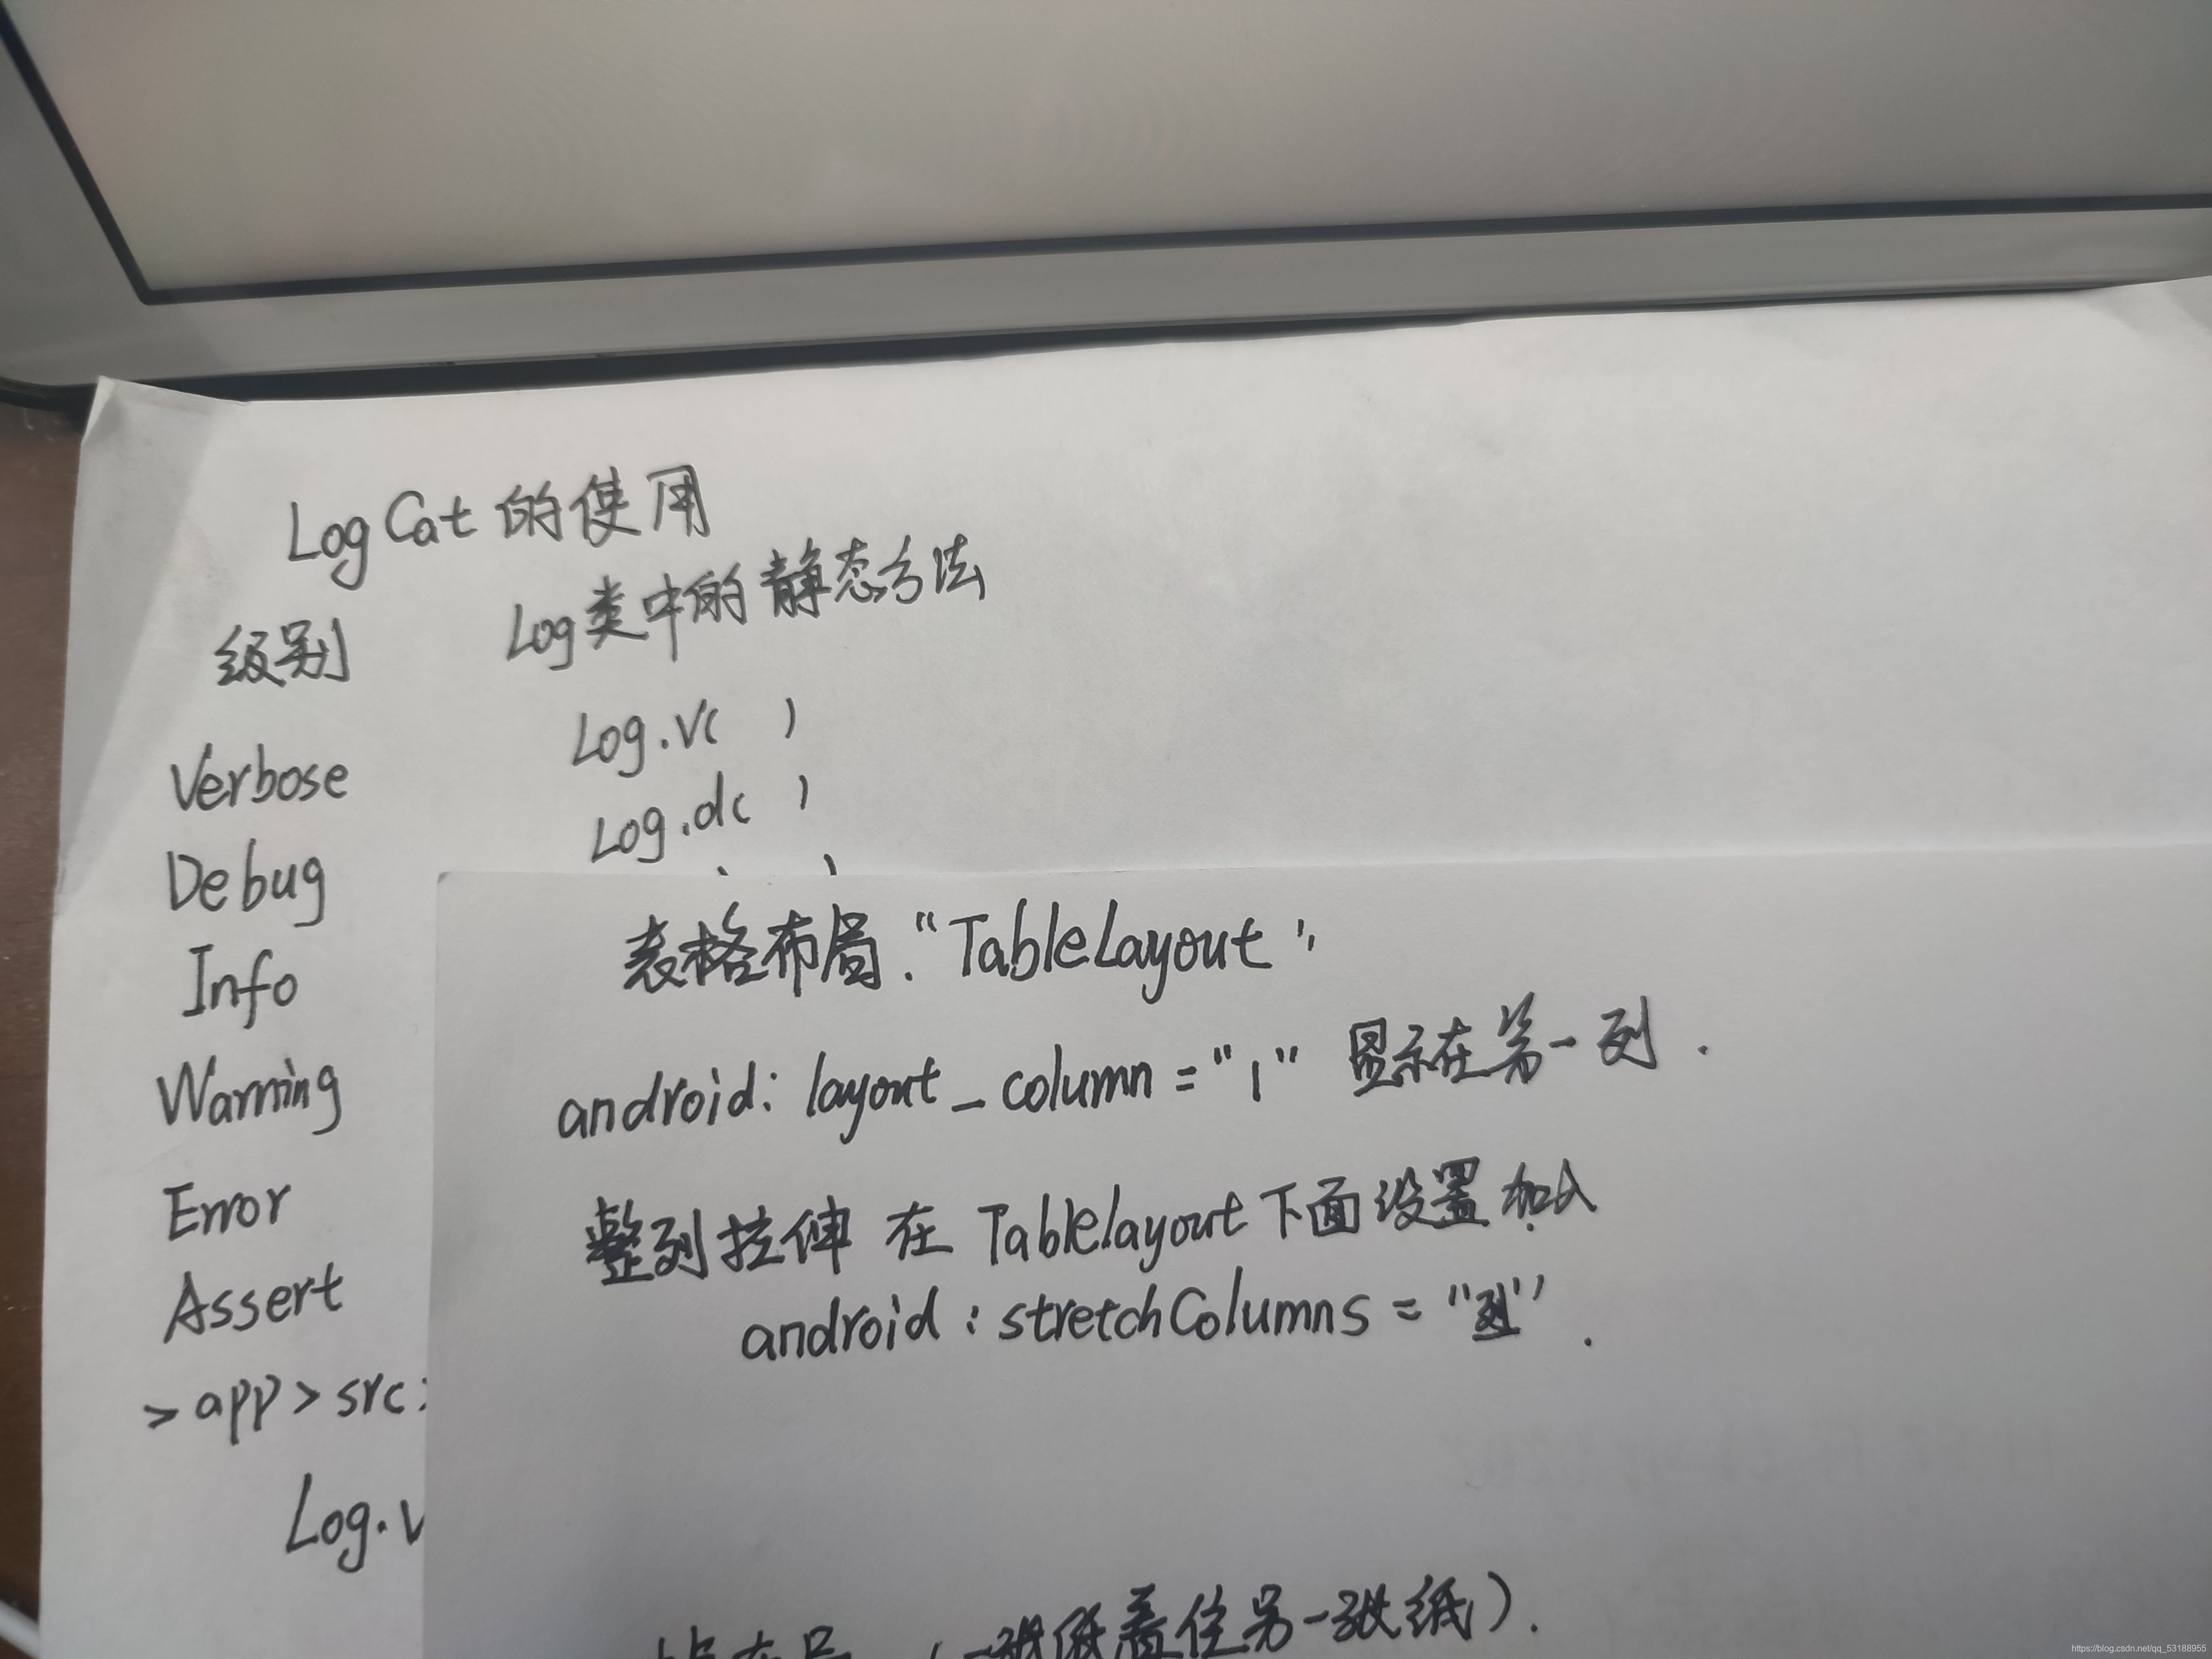 LogCat的使用
级别 Log类中的静态方法
Verbose Log.v( )
Debug Log.d( )
Info
Warning
Error
Assert
>app>src
Log.v
表格布局."TableLayout"
android:layout_column="1" 显示在第一列.
整列拉伸 在 Tablelayout下面设置加入
android:stretchColumns="列".
(一张纸盖住另一张纸).
https://blog.csdn.net/qq_53188955